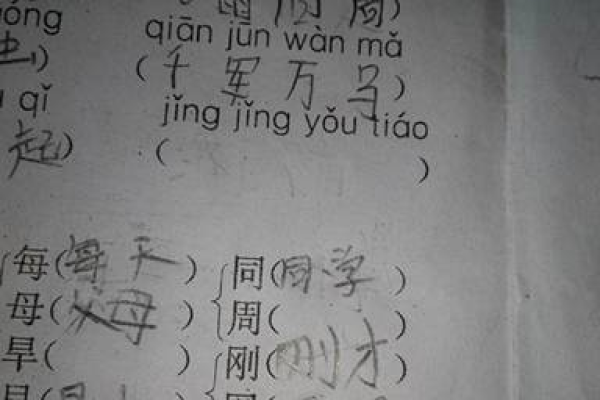 qiān jūn wàn mǎ
(千军万马)
qǐ
jǐng jǐng yǒu tiáo
起) ( )
每(每天) 同(同学)
母(父母) 周( )
旱( ) 刚(刚才)